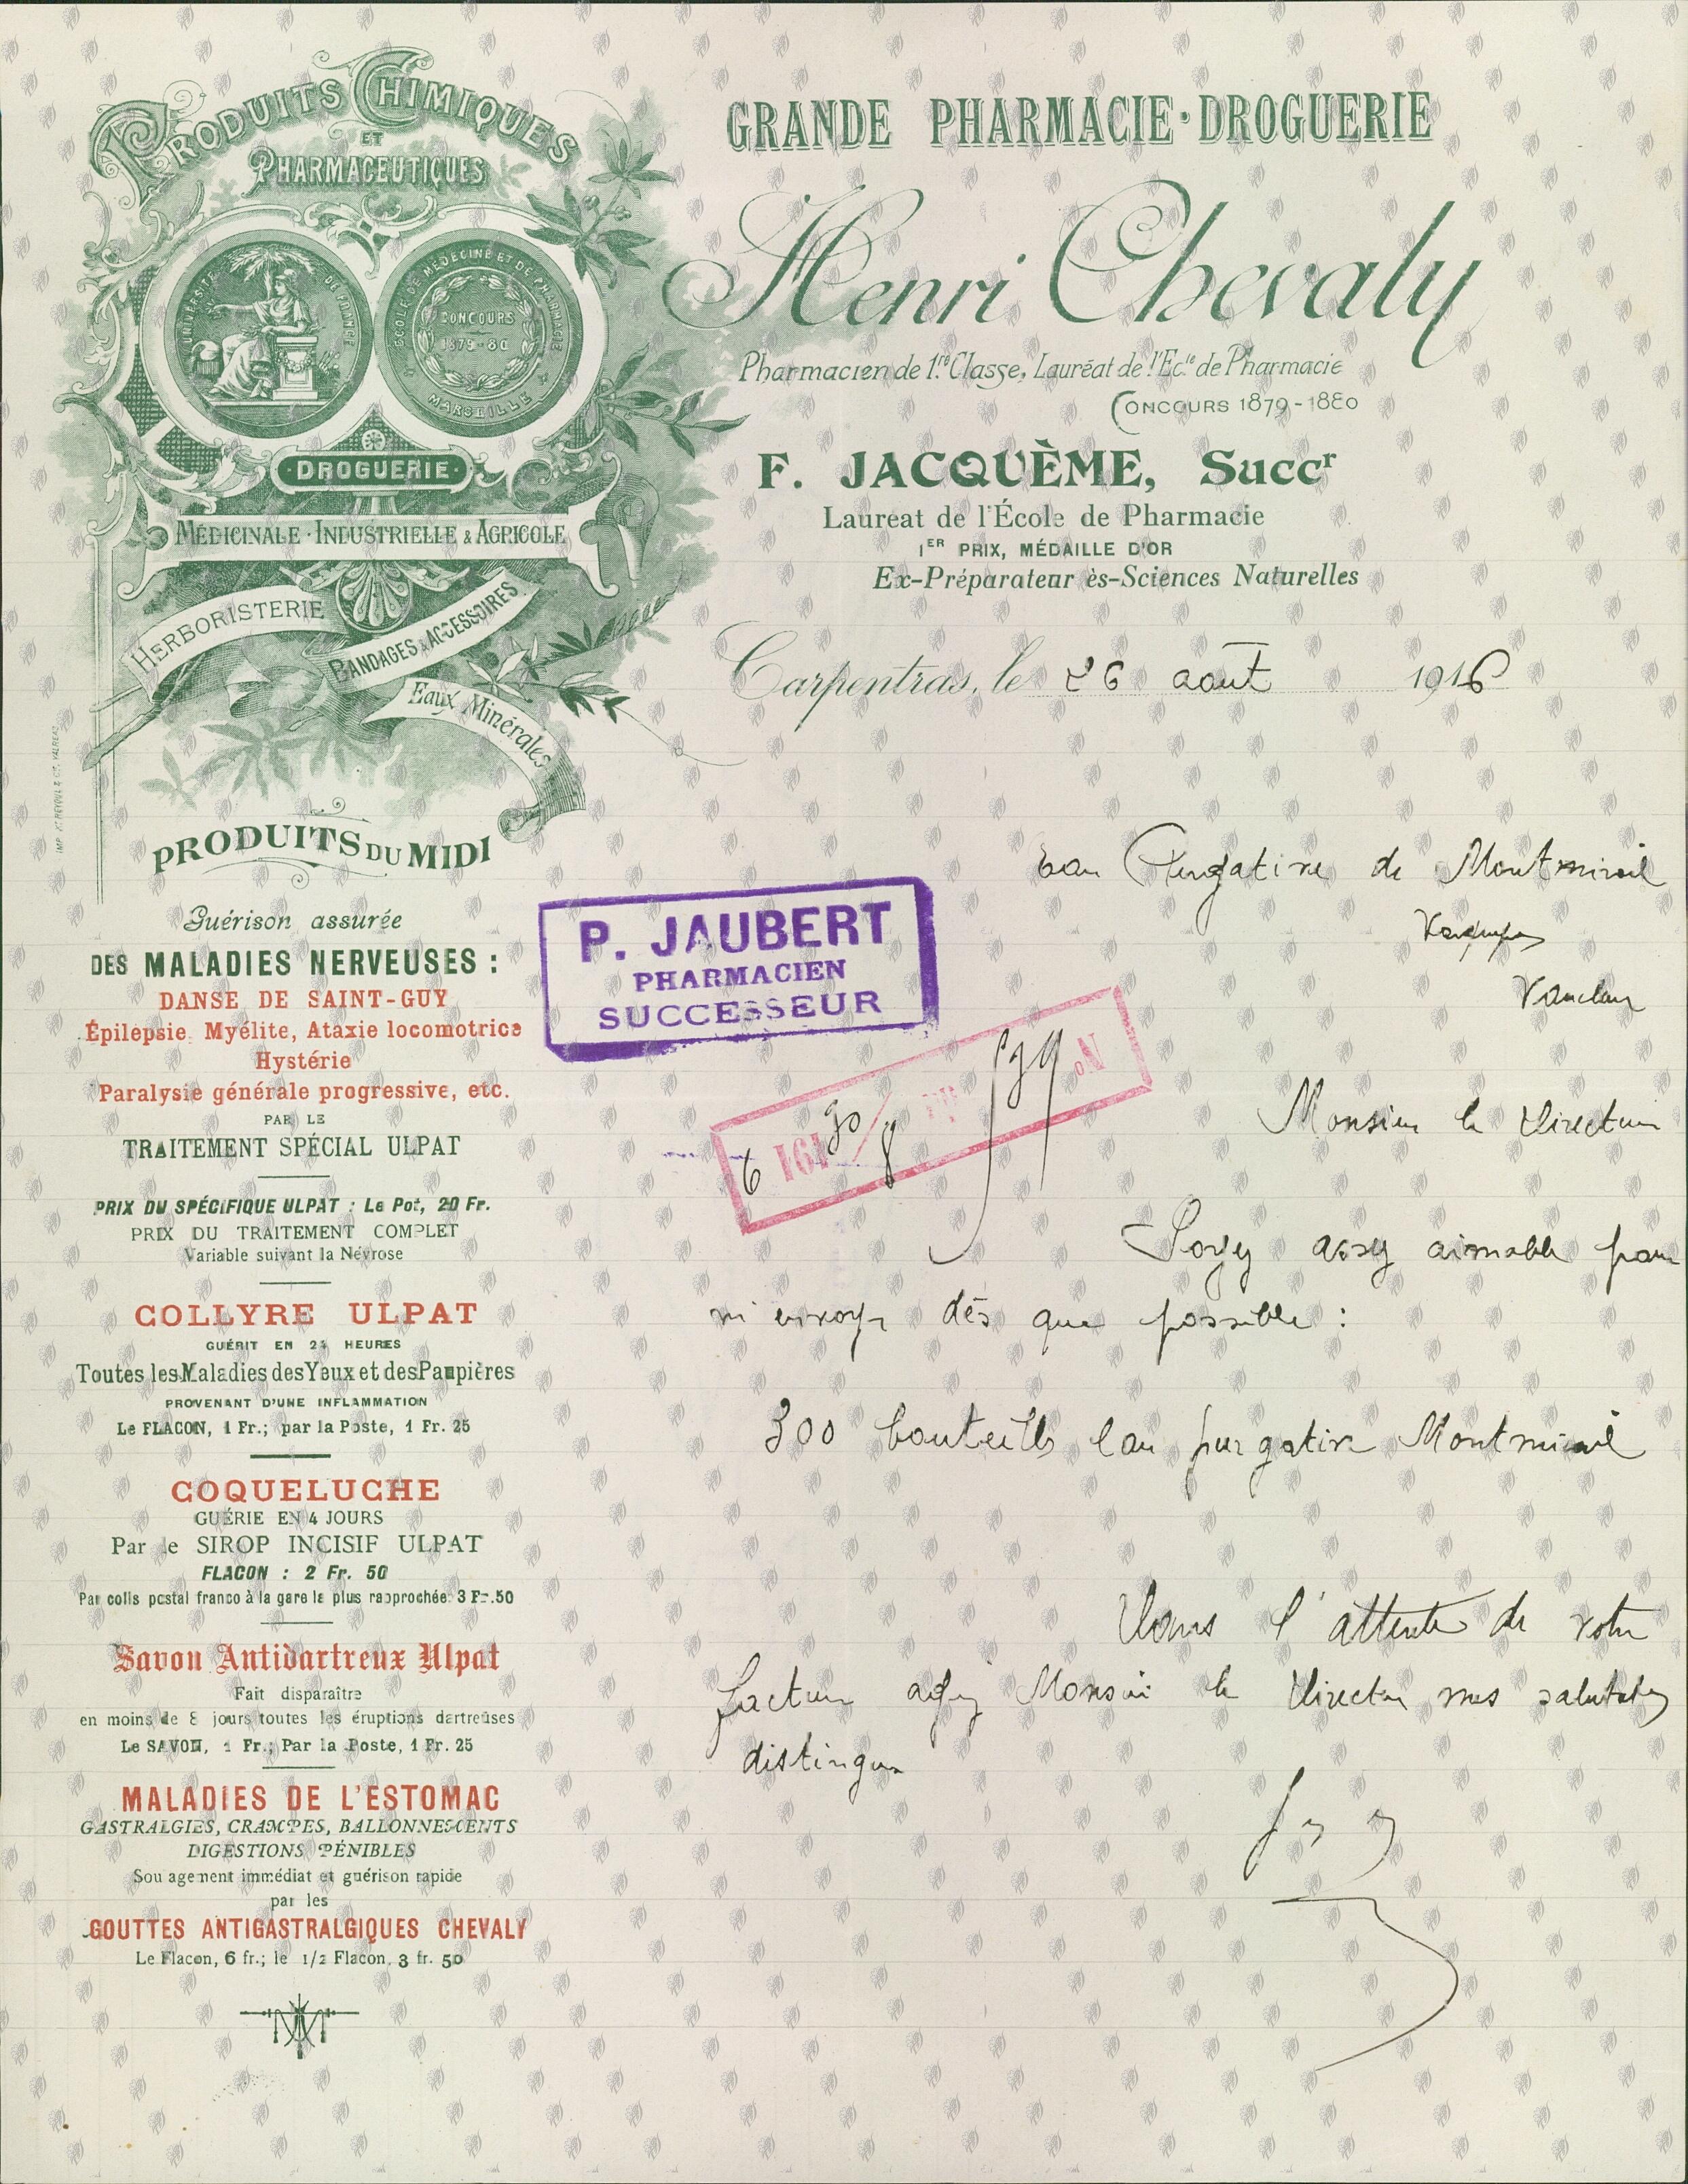 PRODUITS CHIMIQUES
ET
PHARMACEUTIQUES
UNIVERSITÉ DE FRANCE
ÉCOLE DE MÉDECINE ET DE PHARMACIE
CONCOURS
1879-80
MARSEILLE
DROGUERIE
MÉDICINALE · INDUSTRIELLE & AGRICOLE
HERBORISTERIE
BANDAGES & ACCESSOIRES
Eaux Minérales
PRODUITS DU MIDI
GRANDE PHARMACIE · DROGUERIE
Henri Chevaly
Pharmacien de 1re Classe, Lauréat de l'Ecle de Pharmacie
CONCOURS 1879-1880
F. JACQUÈME, Succr
Laureat de l'École de Pharmacie
1ER PRIX, MÉDAILLE D'OR
Ex-Préparateur ès-Sciences Naturelles
Carpentras, le 26 août 1916
Guérison assurée
DES MALADIES NERVEUSES :
DANSE DE SAINT-GUY
Épilepsie, Myélite, Ataxie locomotrice
Hystérie
Paralysie générale progressive, etc.
PAR LE
TRAITEMENT SPÉCIAL ULPAT
PRIX DU SPÉCIFIQUE ULPAT : Le Pot, 20 Fr.
PRIX DU TRAITEMENT COMPLET
Variable suivant la Névrose
COLLYRE ULPAT
GUÉRIT EN 24 HEURES
Toutes les Maladies des Yeux et des Paupières
PROVENANT D'UNE INFLAMMATION
Le FLACON, 1 Fr.; par la Poste, 1 Fr. 25
COQUELUCHE
GUÉRIE EN 4 JOURS
Par le SIROP INCISIF ULPAT
FLACON : 2 Fr. 50
Par colis postal franco à la gare la plus rapprochée: 3 Fr.50
Savon Antidartreux Ulpat
Fait disparaître
en moins de 8 jours toutes les éruptions dartreuses
Le SAVON, 1 Fr.; Par la Poste, 1 Fr. 25
MALADIES DE L'ESTOMAC
GASTRALGIES, CRAMPES, BALLONNEMENTS
DIGESTIONS PÉNIBLES
Soulagement immédiat et guérison rapide
par les
GOUTTES ANTIGASTRALGIQUES CHEVALY
Le Flacon, 6 fr.; le 1/2 Flacon, 3 fr. 50
P. JAUBERT
PHARMACIEN
SUCCESSEUR
No 539
30/8 1916
Eau Purgative de Montmirail
Vacqueyras
Vaucluse
Monsieur le Directeur
Soyez assez aimable pour
m'envoyer dès que possible :
300 bouteilles Eau purgative Montmirail
Dans l'attente de votre
facture agréez Monsieur le Directeur mes salutations
distinguées